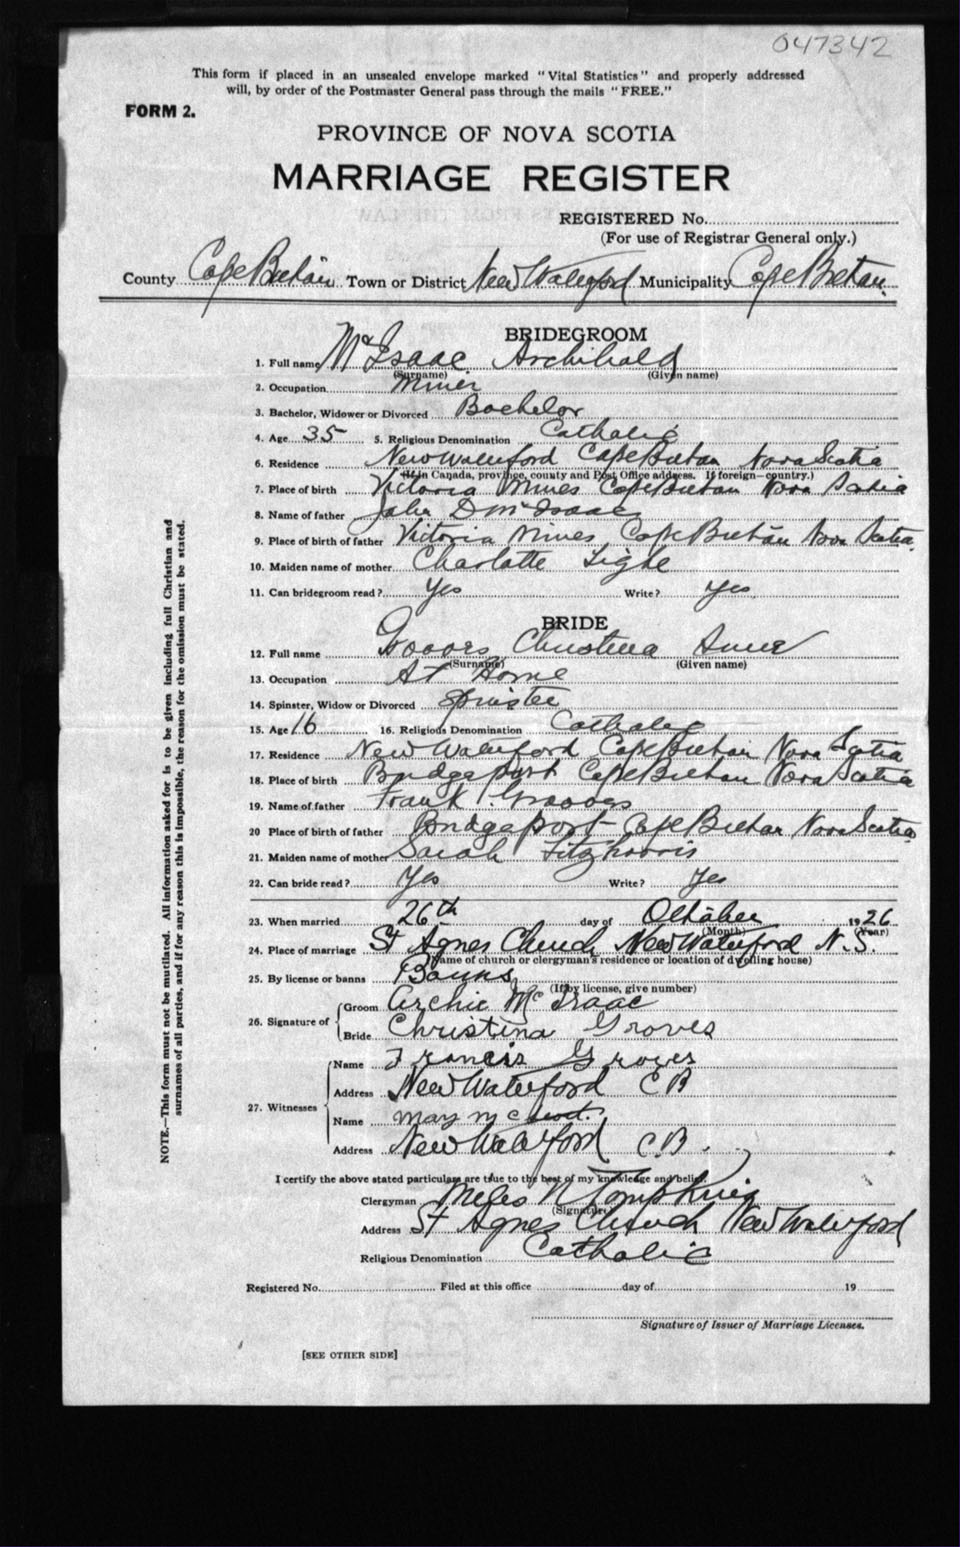 047342
This form if placed in an unsealed envelope marked "Vital Statistics" and properly addressed
will, by order of the Postmaster General pass through the mails "FREE."
FORM 2.
PROVINCE OF NOVA SCOTIA
MARRIAGE REGISTER
REGISTERED No.
(For use of Registrar General only.)
County Cape Breton Town or District New Waterford Municipality Cape Breton
BRIDEGROOM
1. Full name McIsaac Archibald
(Surname) (Given name)
2. Occupation Miner
3. Bachelor, Widower or Divorced Bachelor
4. Age 35 5. Religious Denomination Catholic
6. Residence New Waterford Cape Breton Nova Scotia
(If in Canada, province, county and Post Office address. If foreign—country.)
7. Place of birth Victoria Mines Cape Breton Nova Scotia
8. Name of father John D McIsaac
9. Place of birth of father Victoria Mines Cape Breton Nova Scotia
10. Maiden name of mother Charlotte Tighe
11. Can bridegroom read? Yes Write? Yes
BRIDE
12. Full name Christina
(Surname) (Given name)
13. Occupation At Home
14. Spinster, Widow or Divorced Spinster
15. Age 16 16. Religious Denomination Catholic
17. Residence New Waterford Cape Breton Nova Scotia
18. Place of birth Bridgeport Cape Breton Nova Scotia
19. Name of father Frank Grooves
20 Place of birth of father Bridgeport Cape Breton Nova Scotia
21. Maiden name of mother Sarah Fitzharris
22. Can bride read? Yes Write? Yes
23. When married 26th day of October 1926
(Month) (Year)
24. Place of marriage St Agnes Church, New Waterford N.S.
(Name of church or clergyman's residence or location of dwelling house)
25. By license or banns Banns
(If by license, give number)
26. Signature of Groom Archie McIsaac
Bride Christina Groves
27. Witnesses Name Francis Groves
Address New Waterford C B
Name May Mc
Address New Waterford C.B.
I certify the above stated particulars are true to the best of my knowledge and belief.
Clergyman Miles N Tompkins
(Signature)
Address St Agnes Church New Waterford
Religious Denomination Catholic
Registered No. Filed at this office day of 19
Signature of Issuer of Marriage Licenses.
[SEE OTHER SIDE]
NOTE.—This form must not be mutilated. All information asked for is to be given including full Christian and
surnames of all parties, and if for any reason this is impossible, the reason for the omission must be stated.